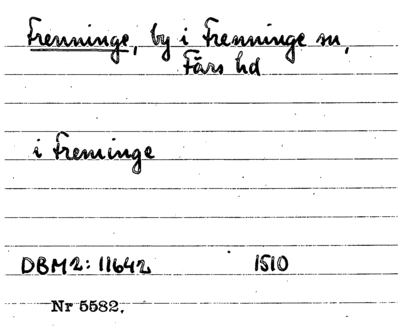 Frenninge, by i Frenninge sn,
Färs hd
i Freminge
DBM2: 11642 1510
Nr 5582.